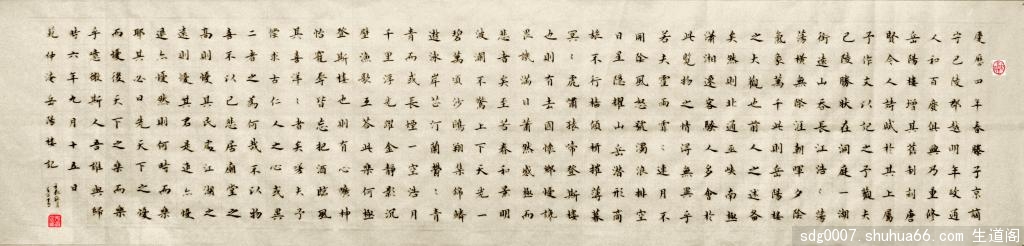 慶曆四年春滕子京謫
守巴陵郡越明年政通
人和百廢俱興乃重修
岳陽樓增其舊制刻唐
賢今人詩賦於其上屬
予作文以記之予觀夫
巴陵勝狀在洞庭一湖
銜遠山吞長江浩浩蕩
蕩橫無際涯朝暉夕陰
氣象萬千此則岳陽樓
之大觀也前人之述備
矣然則北通巫峽南極
瀟湘遷客騷人多會於
此覽物之情得無異乎
若夫霪雨霏霏連月不
開陰風怒號濁浪排空
日星隱耀山岳潛形商
旅不行檣傾楫摧薄暮
冥冥虎嘯猿啼登斯樓
也則有去國懷鄉憂讒
畏譏滿目蕭然感極而
悲者矣至若春和景明
波瀾不驚上下天光一
碧萬頃沙鷗翔集錦鱗
游泳岸芷汀蘭郁郁青
青而或長煙一空皓月
千里浮光躍金靜影沉
璧漁歌互答此樂何極
登斯樓也則有心曠神
怡寵辱皆忘把酒臨風
其喜洋洋者矣嗟夫予
嘗求古仁人之心或異
二者之為何哉不以物
喜不以己悲居廟堂之
高則憂其民處江湖之
遠則憂其君是進亦憂
退亦憂然則何時而樂
耶其必曰先天下之憂
而憂後天下之樂而樂
乎噫微斯人吾誰與歸
時六年九月十五日
范仲淹岳陽樓記
sdg0007.shuhua66.com 生道阁